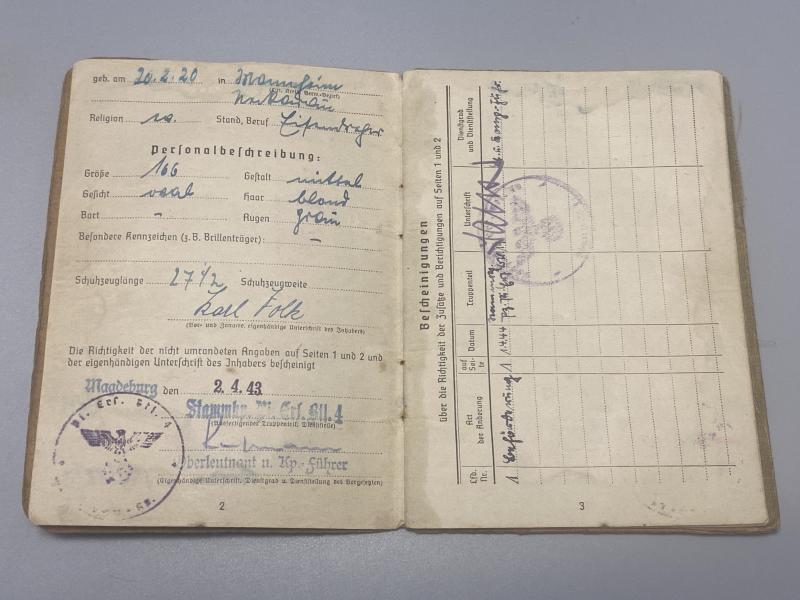 geb. am 20.2.20 in Mannheim
(Ort, Kreis, Verw.-Bezirk)
Neckarau
Religion ev. Stand, Beruf Eisendreher
Personalbeschreibung:
Größe 166 Gestalt mittel
Gesicht oval Haar blond
Bart - Augen grau
Besondere Kennzeichen (z.B. Brillenträger): -
Schuhzeuglänge 27 1/2 Schuhzeugweite
Karl Folk
(Vor- und Zuname, eigenhändige Unterschrift des Inhabers)
Die Richtigkeit der nicht umrandeten Angaben auf Seiten 1 und 2 und
der eigenhändigen Unterschrift des Inhabers bescheinigt
Magdeburg den 2.4.43
Stammkp. Pi. Ers. Btl. 4
(Ausfertigender Truppenteil, Dienststelle)
Oberleutnant u. Kp.-Führer
(Eigenhändige Unterschrift, Dienstgrad u. Dienststellung des Vorgesetzten)
Pi. Ers. Btl. 4
2
Bescheinigungen
über die Richtigkeit der Zusätze und Berichtigungen auf Seiten 1 und 2
Lfd. Nr.
Art der Änderung
auf Seite
Datum
Truppenteil
Unterschrift
Dienstgrad und Dienststellung
1 Beförderung 1 1.4.44
3